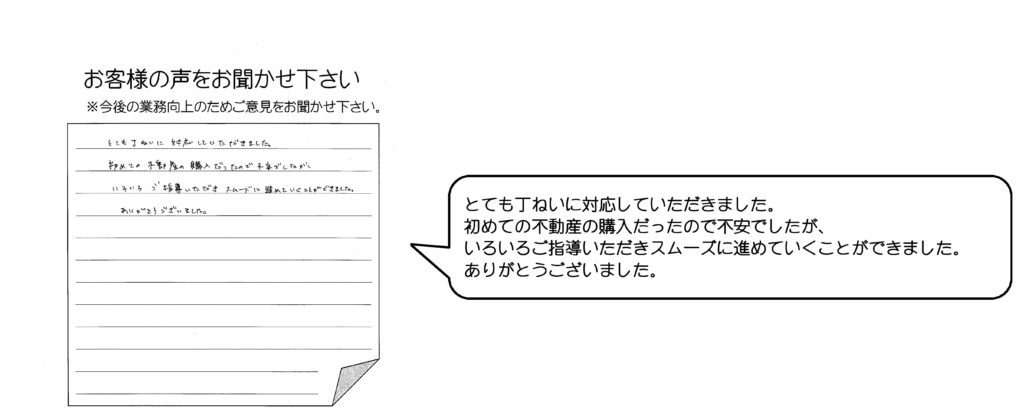 お客様の声をお聞かせ下さい
※今後の業務向上のためご意見をお聞かせ下さい。
とても丁ねいに対応していただきました。
初めての不動産の購入だったので不安でしたが、
いろいろご指導いただきスムーズに進めていくことができました。
ありがとうございました。
とても丁ねいに対応していただきました。
初めての不動産の購入だったので不安でしたが、
いろいろご指導いただきスムーズに進めていくことができました。
ありがとうございました。